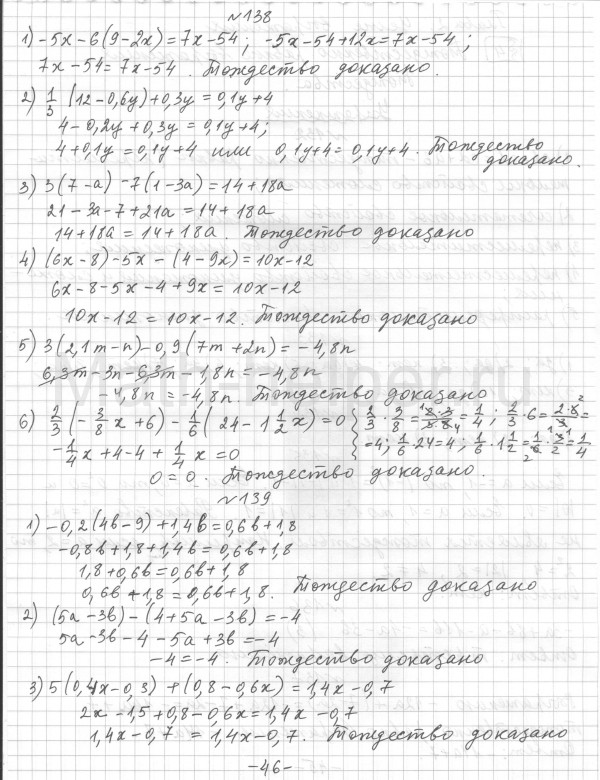 №138
1) -5x-6(9-2x)=7x-54; -5x-54+12x=7x-54;
7x-54=7x-54. Тождество доказано.
2) 1/3 (12-0,6y)+0,3y=0,1y+4
4-0,2y+0,3y=0,1y+4;
4+0,1y=0,1y+4 или 0,1y+4=0,1y+4. Тождество
доказано.
3) 3(7-a)-7(1-3a)=14+18a
21-3a-7+21a=14+18a
14+18a=14+18a. Тождество доказано
4) (6x-8)-5x-(4-9x)=10x-12
6x-8-5x-4+9x=10x-12
10x-12=10x-12. Тождество доказано
5) 3(2,1m-n)-0,9(7m+2n)=-4,8n
6,3m-3n-6,3m-1,8n=-4,8n
-4,8n=-4,8n. Тождество доказано
6) 2/3(-3/8x+6)-1/6(24-1 1/2x)=0 { 2/3·3/8=2·3/3·8=1/4; 2/3·6=2·6/3=
-1/4x+4-4+1/4x=0 =4; 1/6·24=4; 1/6·1 1/2=1/6·3/2=1/4
0=0. Тождество доказано.
№139
1) -0,2(4b-9)+1,4b=0,6b+1,8
-0,8b+1,8+1,4b=0,6b+1,8
1,8+0,6b=0,6b+1,8
0,6b+1,8=0,6b+1,8. Тождество доказано
2) (5a-3b)-(4+5a-3b)=-4
5a-3b-4-5a+3b=-4
-4=-4. Тождество доказано.
3) 5(0,4x-0,3)+(0,8-0,6x)=1,4x-0,7
2x-1,5+0,8-0,6x=1,4x-0,7
1,4x-0,7=1,4x-0,7. Тождество доказано
-46-